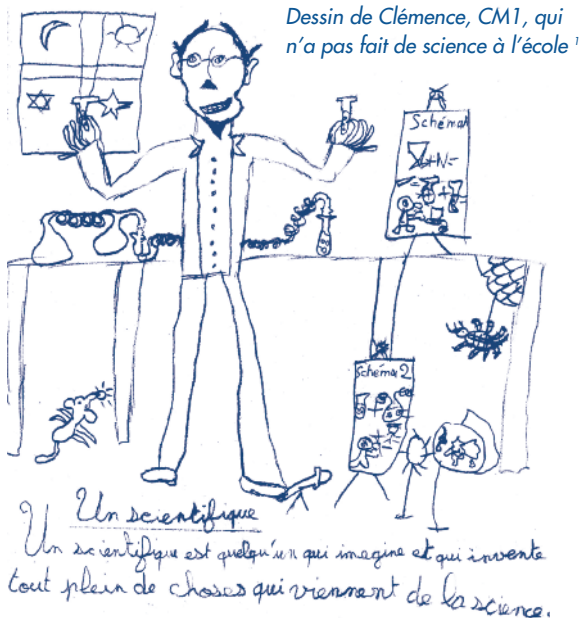 Dessin de Clémence, CM1, qui
n'a pas fait de science à l'école 1
Schéma1
+N=
Schéma 2
Un scientifique
Un scientifique est quelqu'un qui imagine et qui invente
tout plein de choses qui viennent de la science.